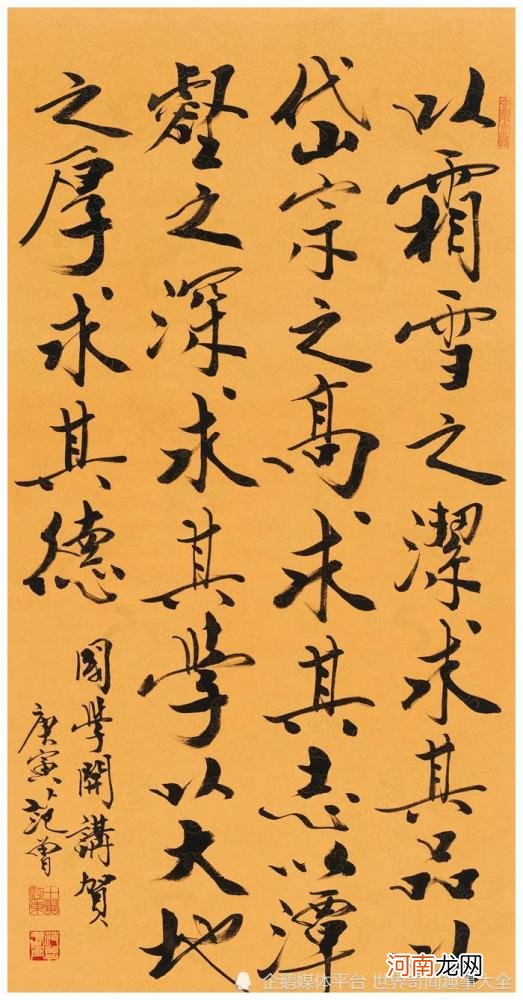 以霜雪之潔求其品以
岱宗之高求其志以潭
壑之深求其学以大地
之厚求其德
國学開講賀
庚寅十翼范曾
企鹅媒体平台 世界奇闻趣事大全
河南龙网